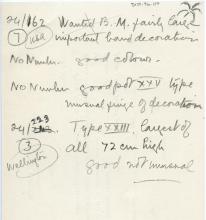 24/162 Wanted B. M. fairly large
7 USA important band decoration
No Number. good colour.
No Number good pot XXV type
unusual fringe of decoration
24/223 Type XXIII, Largest of
3 all 72 cm high
Wellington good not unusual